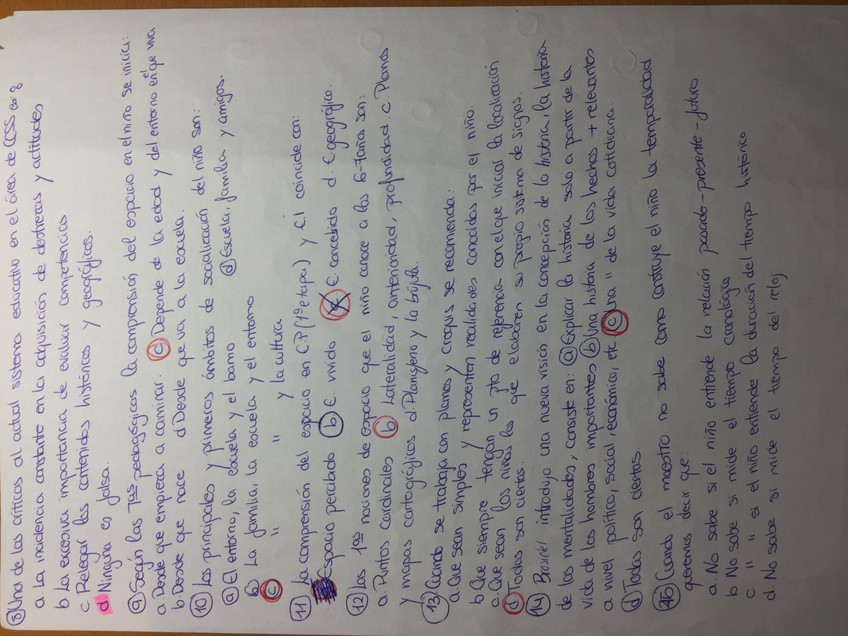 8) Una de las críticas al actual sistema educativo en el área de CCSS es:
a. La incidencia constante en la adquisición de destrezas y actitudes
b. La excesiva importancia de evaluar competencias
c. Relegar los contenidos históricos y geográficos.
d. Ninguna es falsa.
9) Según las Tªs pedagógicas la comprensión del espacio en el niño se inicia:
a. Desde que empieza a caminar. c) Depende de la edad y del entorno en el que viva
b. Desde que nace d. Desde que va a la escuela.
10) Los principales y primeros ámbitos de socialización del niño son:
a) El entorno, la escuela y el barrio d) Escuela, familia y amigos.
b) La familia, la escuela y el entorno
c) " " y la cultura
11) La comprensión del espacio en EP (1ª etapa) y EI coincide con:
Espacio percibido b) E. vivido c) E. concebido d. E. geográfico.
12) Las 1ªs nociones de espacio que el niño conoce a los 6-7 años son:
a. Puntos cardinales b) Lateralidad, anterioridad, profundidad. c. Planos
y mapas cartográficos d. Planisferio y la brújula.
13) Cuando se trabaja con planos y croquis se recomienda:
a. Que sean simples y representen realidades conocidas por el niño.
b. Que siempre tengan un pto de referencia con el que iniciar la localización
c. Que sean los niños los que elaboren su propio sistema de signos.
d) Todas son ciertas.
14) Braudel introdujo una nueva visión en la concepción de la historia, la historia
de las mentalidades, consiste en: a) Explicar la historia solo a partir de la
vida de los hombres importantes b) Una historia de los hechos + relevantes
a nivel político, social, económico, etc. c) Una " de la vida cotidiana.
d) Todas son ciertas
15) Cuando el maestro no sabe cómo construye el niño la temporalidad
queremos decir que:
a. No sabe si el niño entiende la relación pasado-presente-futuro
b. No sabe si mide el tiempo cronológico
c. " " si el niño entiende la duración del tiempo histórico
d. No sabe si mide el tiempo del reloj